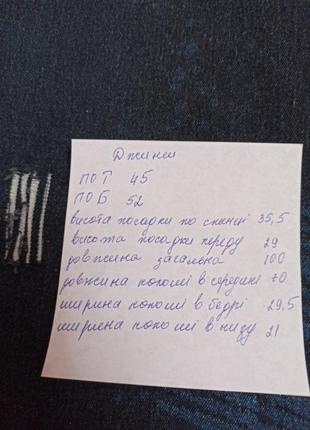 Джинси
ПОТ 45
ПОБ 52
висота посадки по спинці 35,5
висота посадки переду 29
довжина загальна 100
довжина колоші в середині 70
ширина колоші в бедрі 29,5
ширина колоші в низу 21